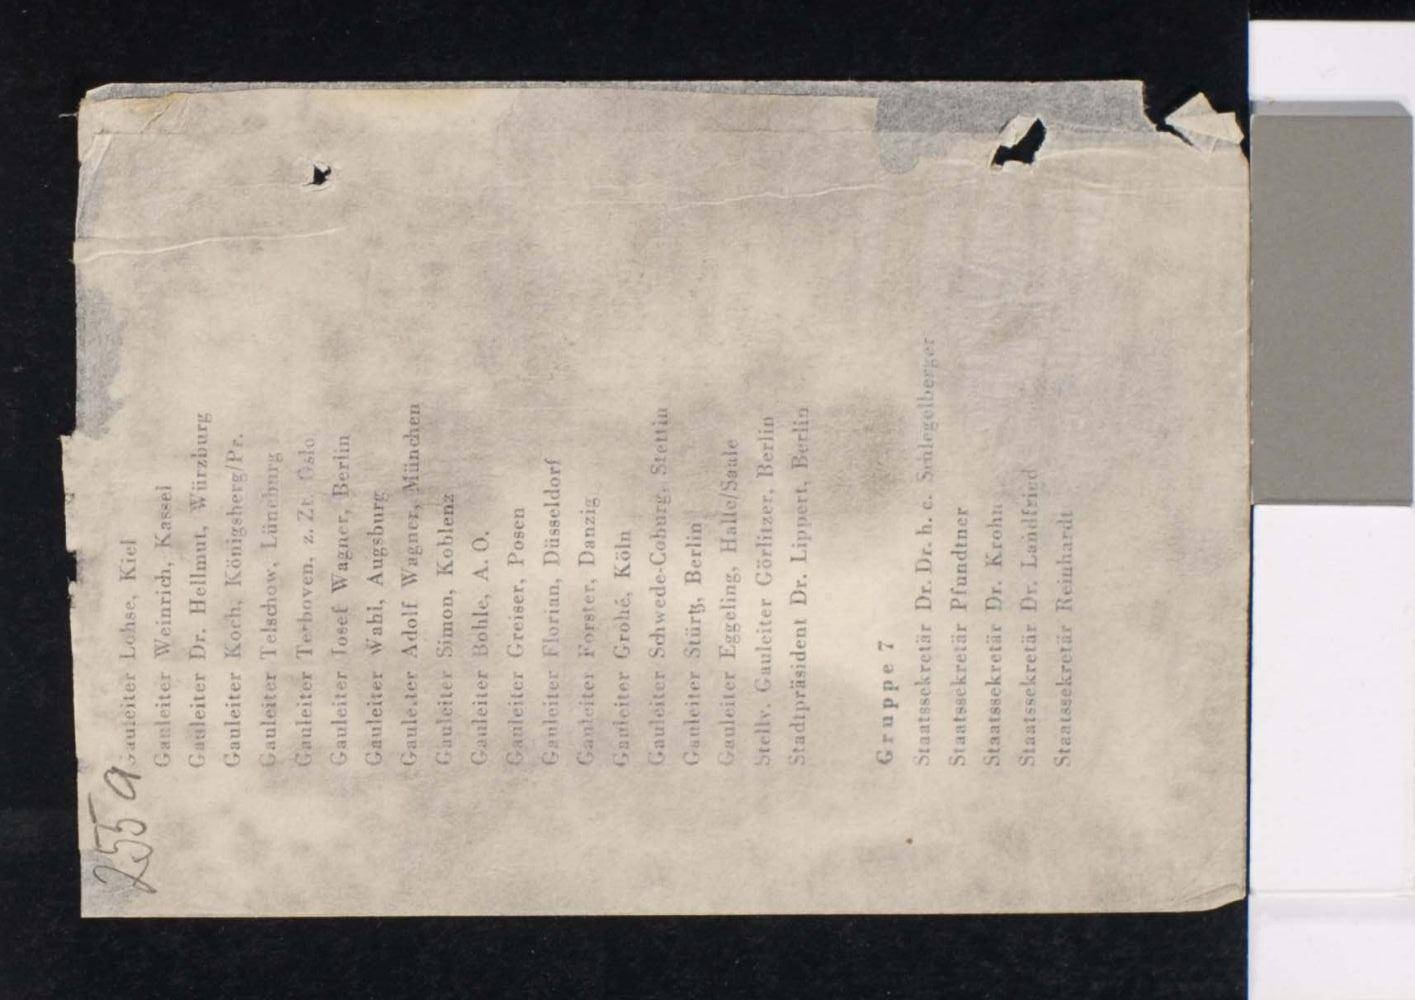 255a
Gauleiter Lohse, Kiel
Gauleiter Weinrich, Kassel
Gauleiter Dr. Hellmut, Würzburg
Gauleiter Koch, Königsberg/Pr.
Gauleiter Telschow, Lüneburg
Gauleiter Terboven, z. Zt. Oslo
Gauleiter Josef Wagner, Berlin
Gauleiter Wahl, Augsburg
Gauleiter Adolf Wagner, München
Gauleiter Simon, Koblenz
Gauleiter Bohle, A. O.
Gauleiter Greiser, Posen
Gauleiter Florian, Düsseldorf
Gauleiter Forster, Danzig
Gauleiter Grohé, Köln
Gauleiter Schwede-Coburg, Stettin
Gauleiter Stürtz, Berlin
Gauleiter Eggeling, Halle/Saale
Stellv. Gauleiter Görlitzer, Berlin
Stadtpräsident Dr. Lippert, Berlin
Gruppe 7
Staatssekretär Dr. Dr. h. c. Schlegelberger
Staatssekretär Pfundtner
Staatssekretär Dr. Krohn
Staatssekretär Dr. Landfried
Staatssekretär Reinhardt